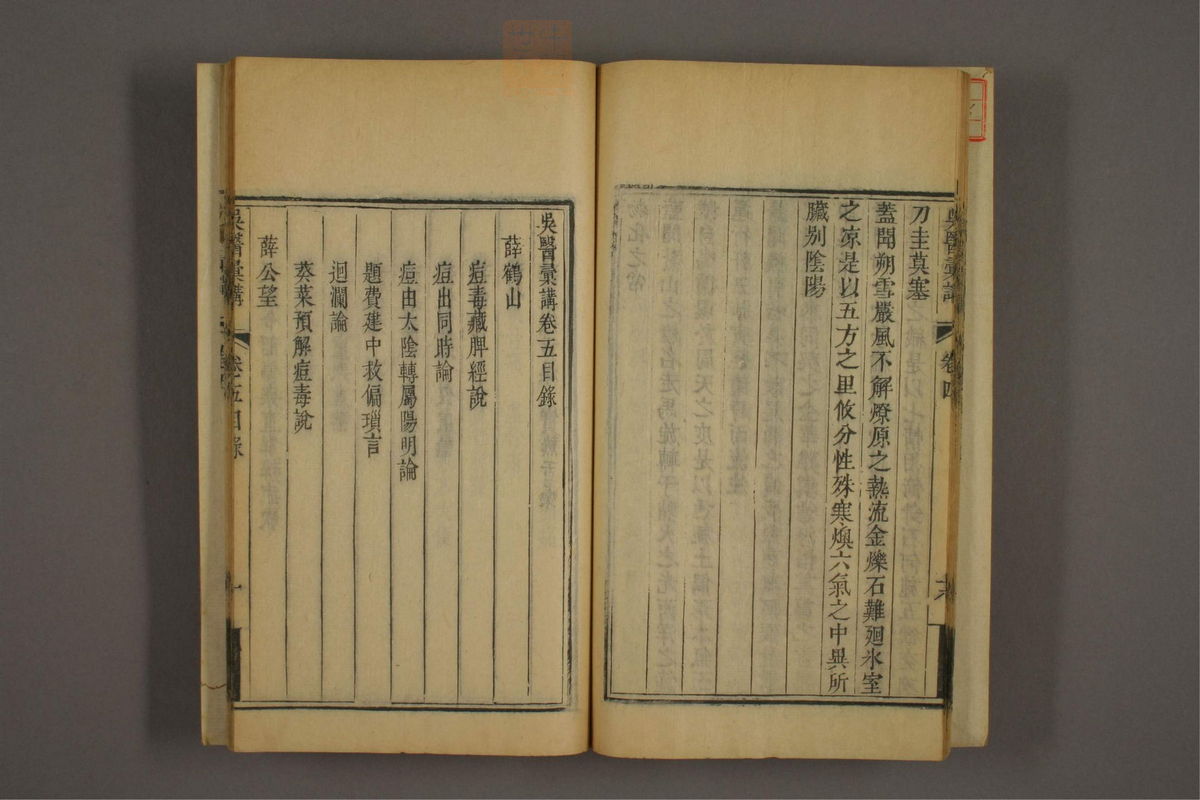 刀圭莫塞
蓋聞朔雪嚴風不解燎原之熱流金爍石難廻氷室
之凉是以五方之里攸分性殊寒燠六氣之中異所
臟别陰陽
卷四
吳醫彙講卷五目錄
薛鶴山
痘毒藏脾經說
痘出同時論
痘由太陰轉屬陽明論
題費建中救偏瑣言
迴瀾論
葵菜預解痘毒說
薛公望
吳醫彙講
卷五目錄
一